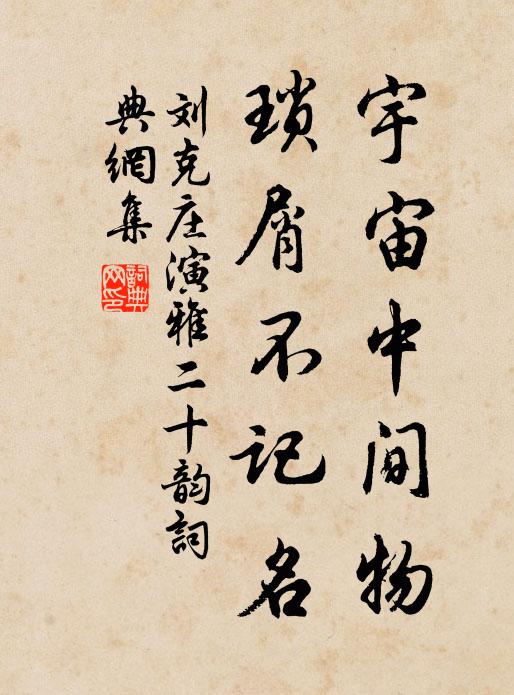 宇宙中间物
琐屑不记名
刘克庄演雅二十韵词
典網集
詞典
网印